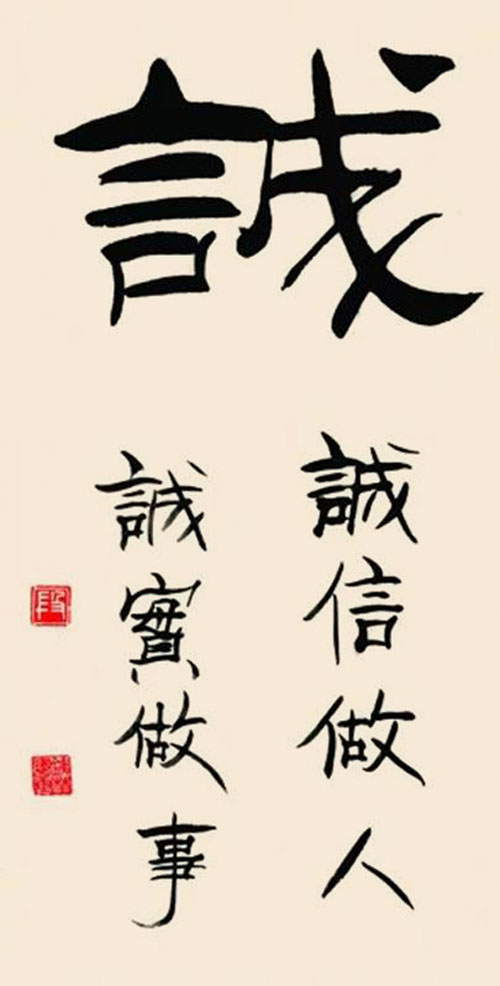 誠
誠信做人
誠實做事
段